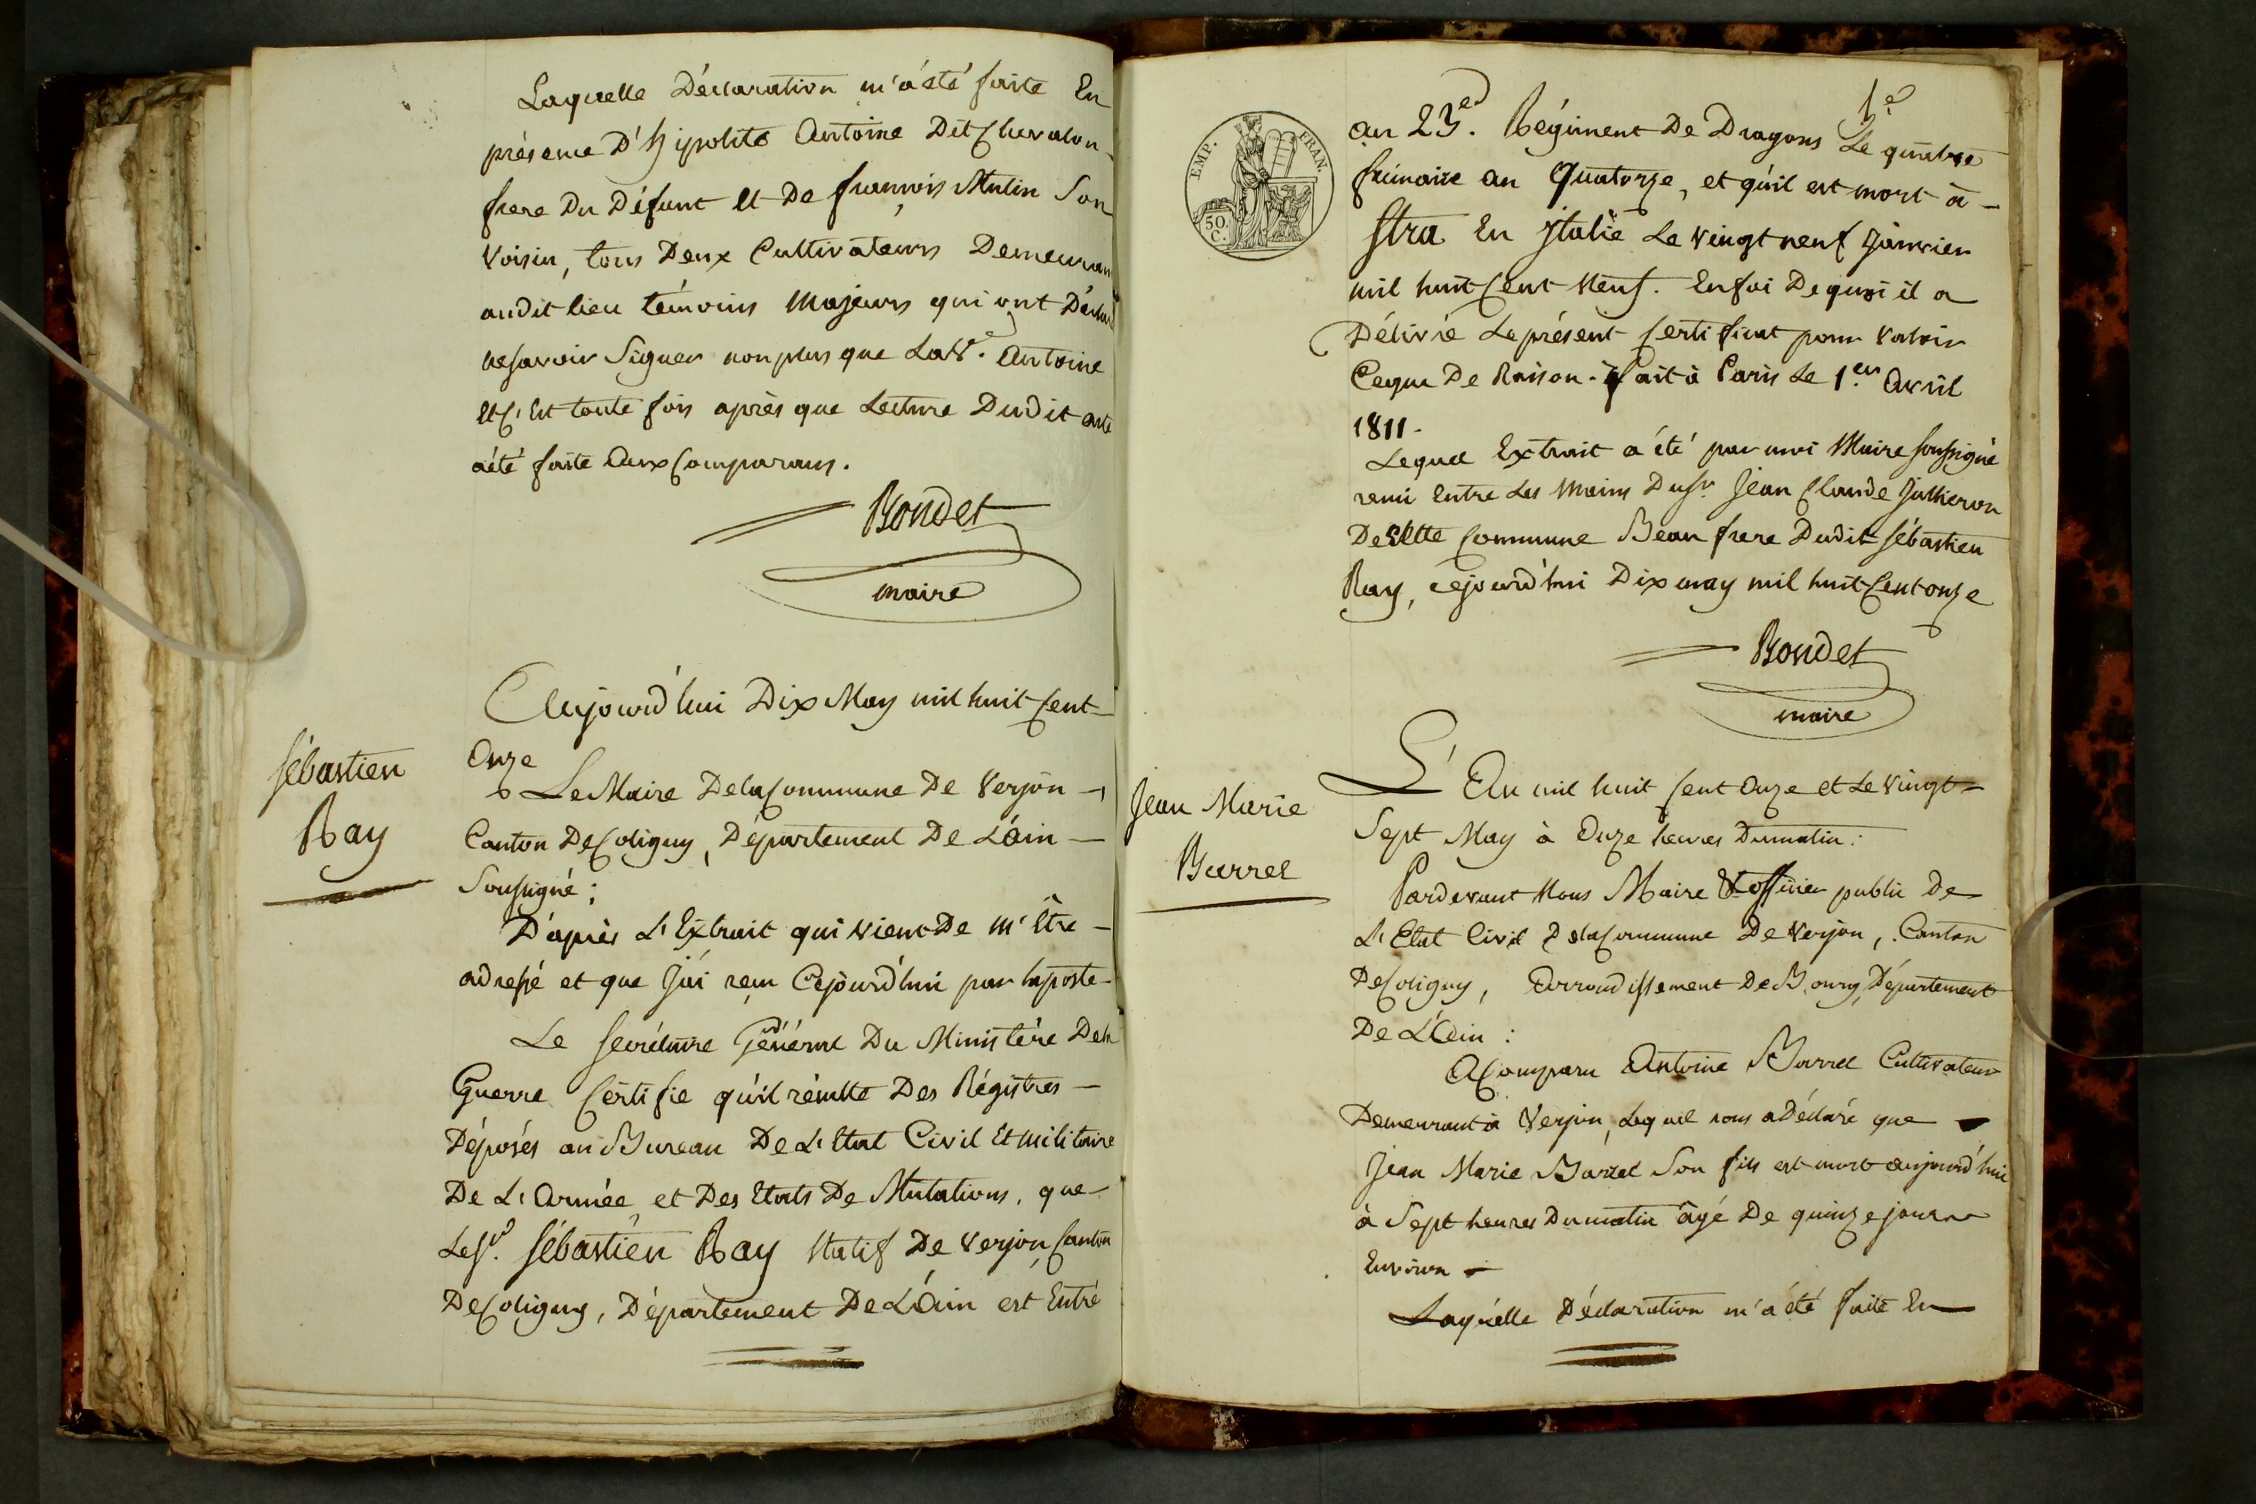 Laquelle Déclaration m'a été faite En
présence D'hipolite Antoine Dit Chevalon
frere Du Défunt Et De françois Mulin Son
Voisin, tous Deux Cultivateurs Demeuran
audit lieu témoins Majeurs qui ont Déclaré
ne savoir Signer non plus que La Ve. Antoine
Et C'Est toute fois après que Lecture Dudit acte
a été faite Aux Comparans.
Bondet
maire
Aujourd'hui Dix May mil huit Cent
Onze
Sébastien
Ray
Le Maire De la Commune De Verjon
Canton De Coligny, Département De L'ain
Soussigné;
D'après L'Extrait qui Vient De M'Être
adressé et que J'ai reçu Cejourd'hui par la poste
Le Secrétaire Général Du Ministère De la
Guerre Certifie qu'il résulte Des Régistres
Déposés au Bureau De L'Etat Civil Et militaire
De L'Armée et Des Etats De Mutations, que
Le Sr. Sébastien Ray Natif De Verjon Canton
De Coligny, Département De L'Ain est Entré
1e
EMP. FRAN.
50.
C.
au 23e. Régiment De Dragons Le quatre
frimaire an Quatorze, et qu'il est mort à
Stra En Italie Le Vingt neuf Janvier
mil huit Cent Neuf. En foi De quoi il a
Délivré Le présent Certificat pour Valoir
Ceque De Raison. Fait à Paris Le 1er. Avril
1811.
Lequel Extrait a été par moi Maire soussigné
remi Entre Les Mains Du Sr. Jean Claude
De Cette Commune Beau frere Dudit Sébastien
Ray, cejourd'hui Dix may mil huit Cent onze
Bondet
maire
Jean Marie
Burrel
L'An mil huit Cent Onze et Le Vingt
Sept May à Onze heures Du matin:
Pardevant Nous Maire & officier public De
L'Etat Civil De la Commune De Verjon, Canton
De Coligny, Arrondissement De Bourg Département
De L'Ain:
A Comparu Antoine Burrel Cultivateur
Demeurant à Verjon, Lequel nous a Déclaré que
Jean Marie Burrel Son fils est mort aujourd'hui
à Sept heures Du matin âgé De quinze jours
Environ
Laquelle Déclaration m'a été faite En